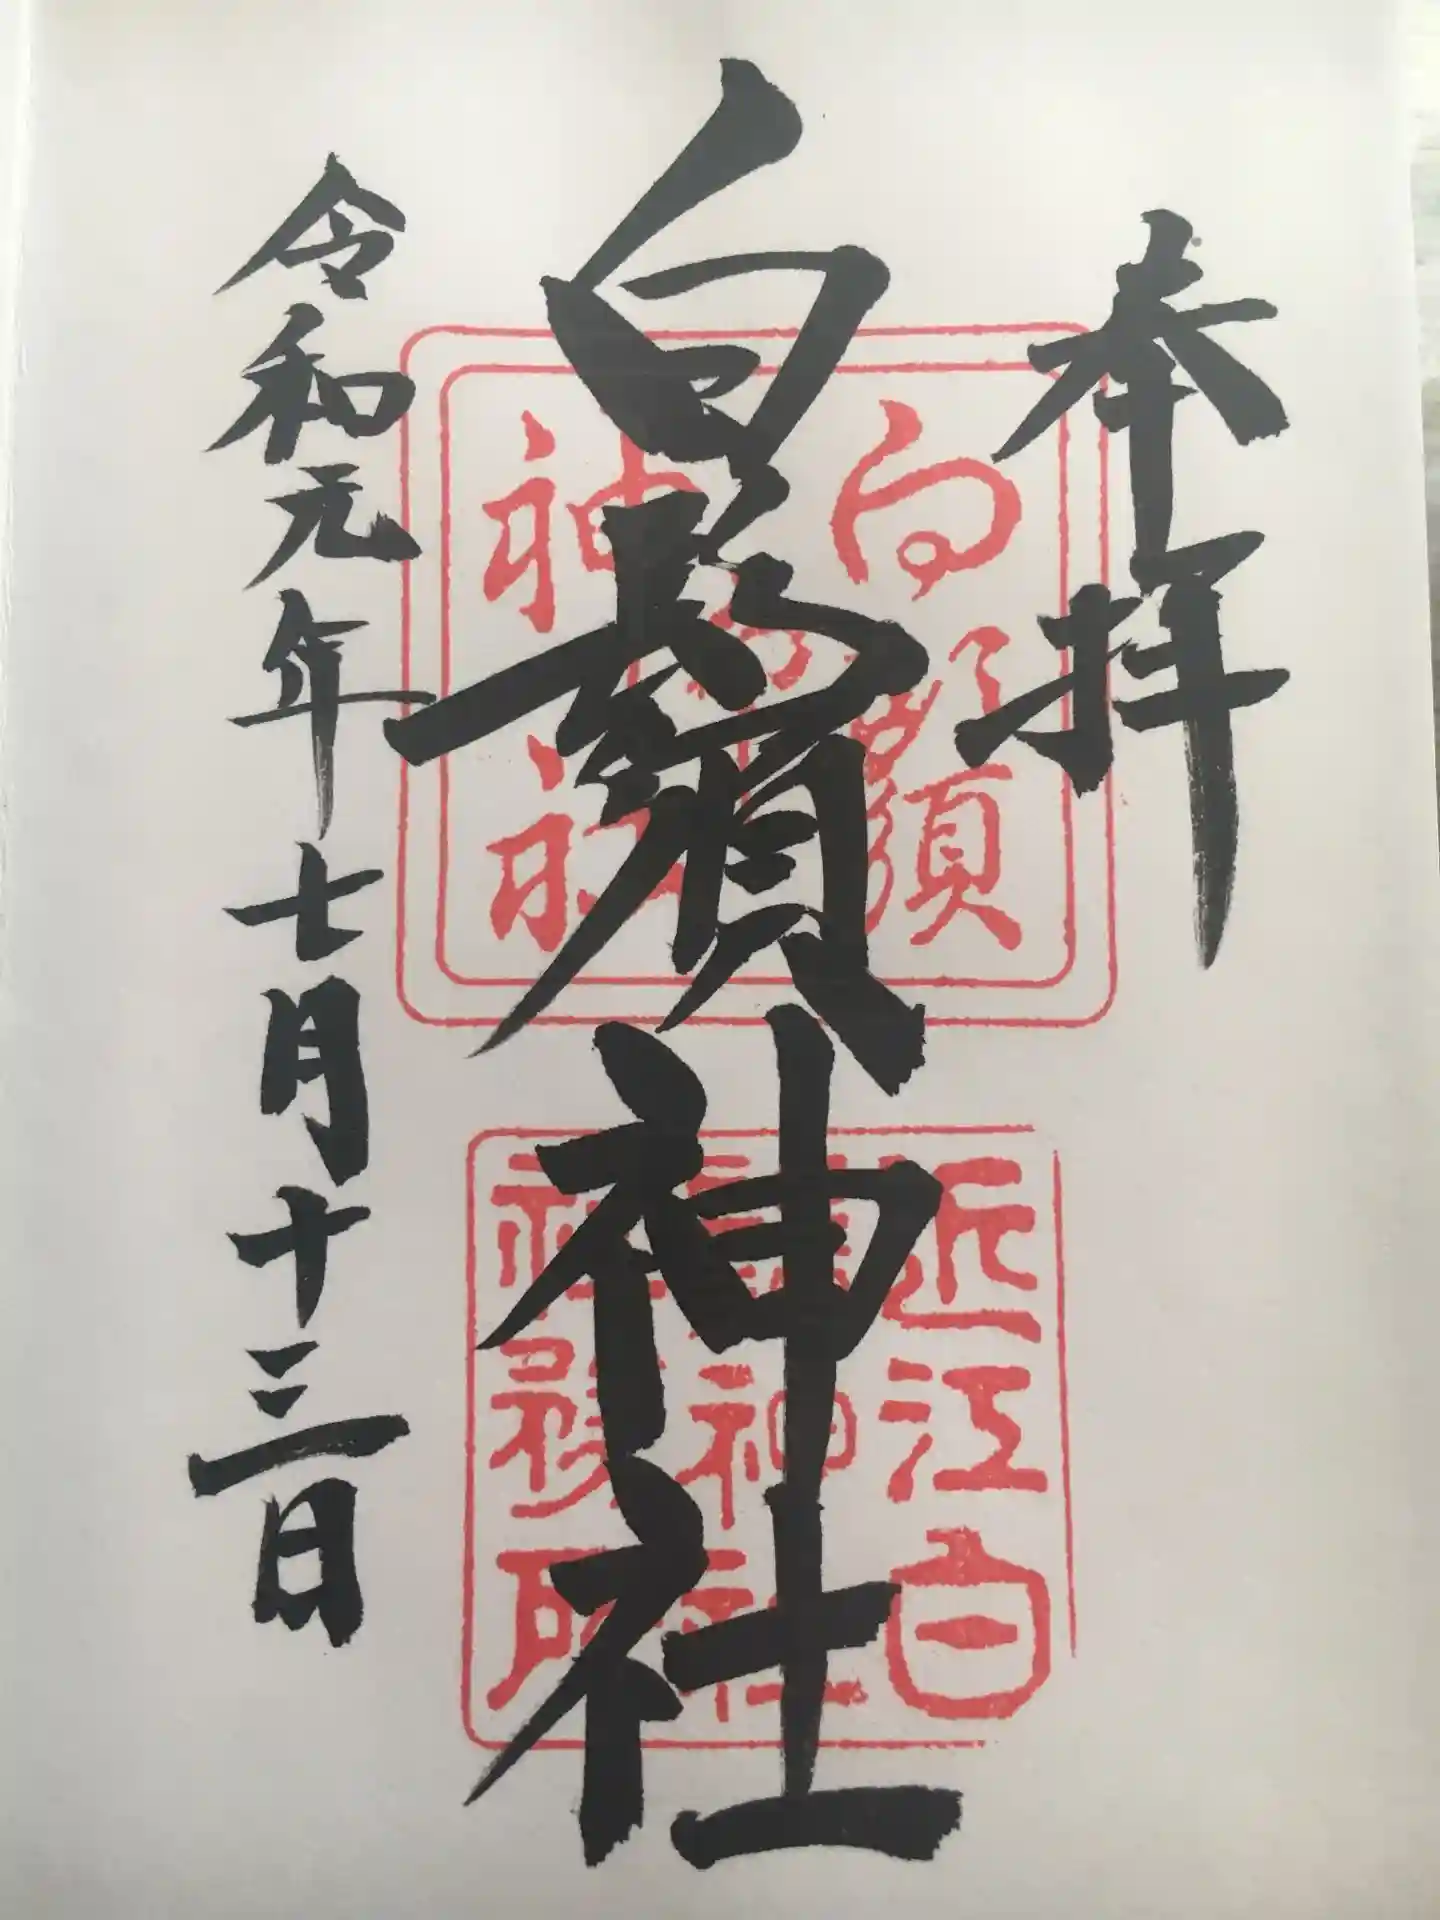 奉拝
白鬚神社
令和元年七月十三日
白鬚
神社
近江白
神社
社務所